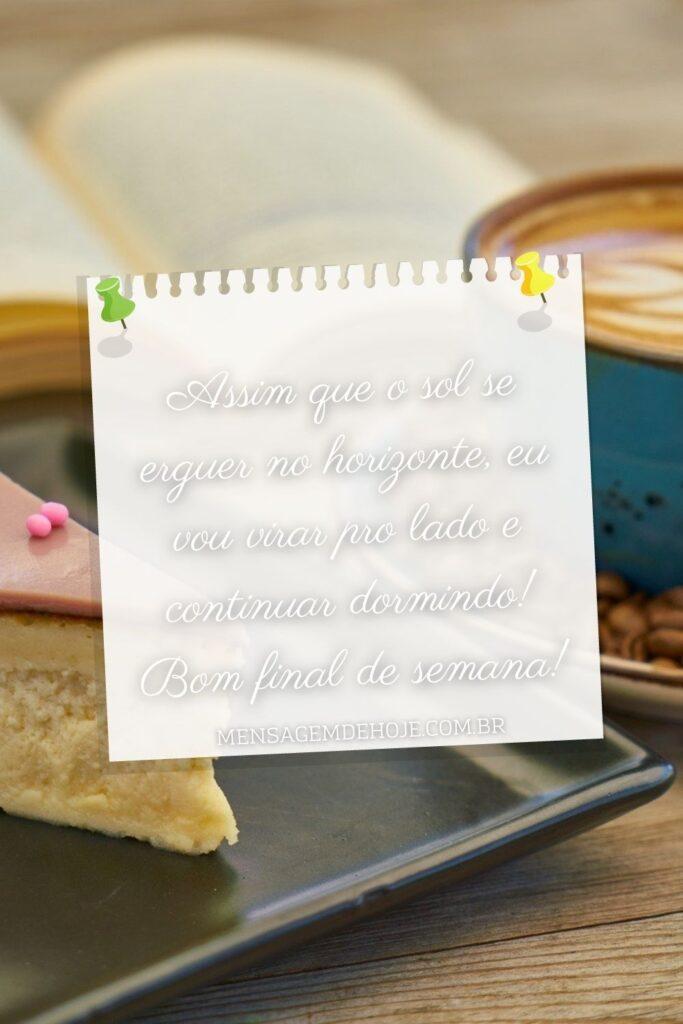 Assim que o sol se
erguer no horizonte, eu
vou virar pro lado e
continuar dormindo!
Bom final de semana!
MENSAGEMDEHOJE.COM.BR